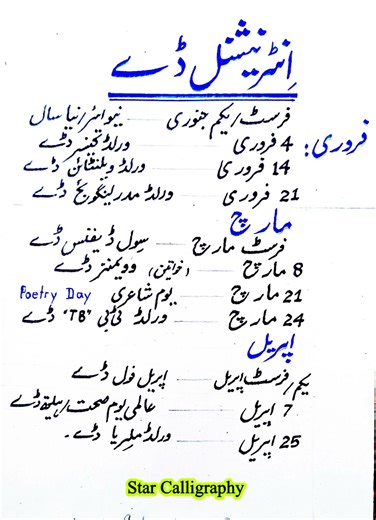 اِنٹرنیشنل ڈے
فرسٹ/یکم جنوری — نیوائر/نیا سال
فروری:
4 فروری — ورلڈ کینسر ڈے
14 فروری — ورلڈ ویلنٹائن ڈے
21 فروری — ورلڈ مدر لینگویج ڈے
مارچ
فرسٹ مارچ — سِول ڈیفنس ڈے
8 مارچ — (خواتین) وویمنز ڈے
21 مارچ — یوم شاعری Poetry Day
24 مارچ — ورلڈ ٹی بی "TB" ڈے
اپریل
یکم/فرسٹ اپریل — اپریل فول ڈے
7 اپریل — عالمی یوم صحت/ہیلتھ ڈے
25 اپریل — ورلڈ ملیریا ڈے۔
Star Calligraphy